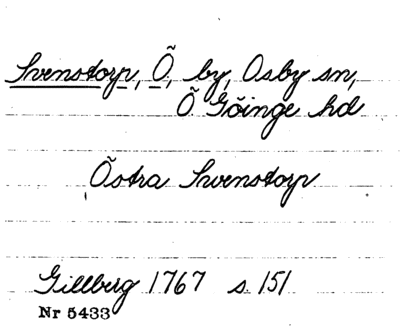 Svenstorp, Ö, by, Osby sn,
Ö Göinge hd
Östra Swenstorp
Gillberg 1767 s. 151
Nr 5433